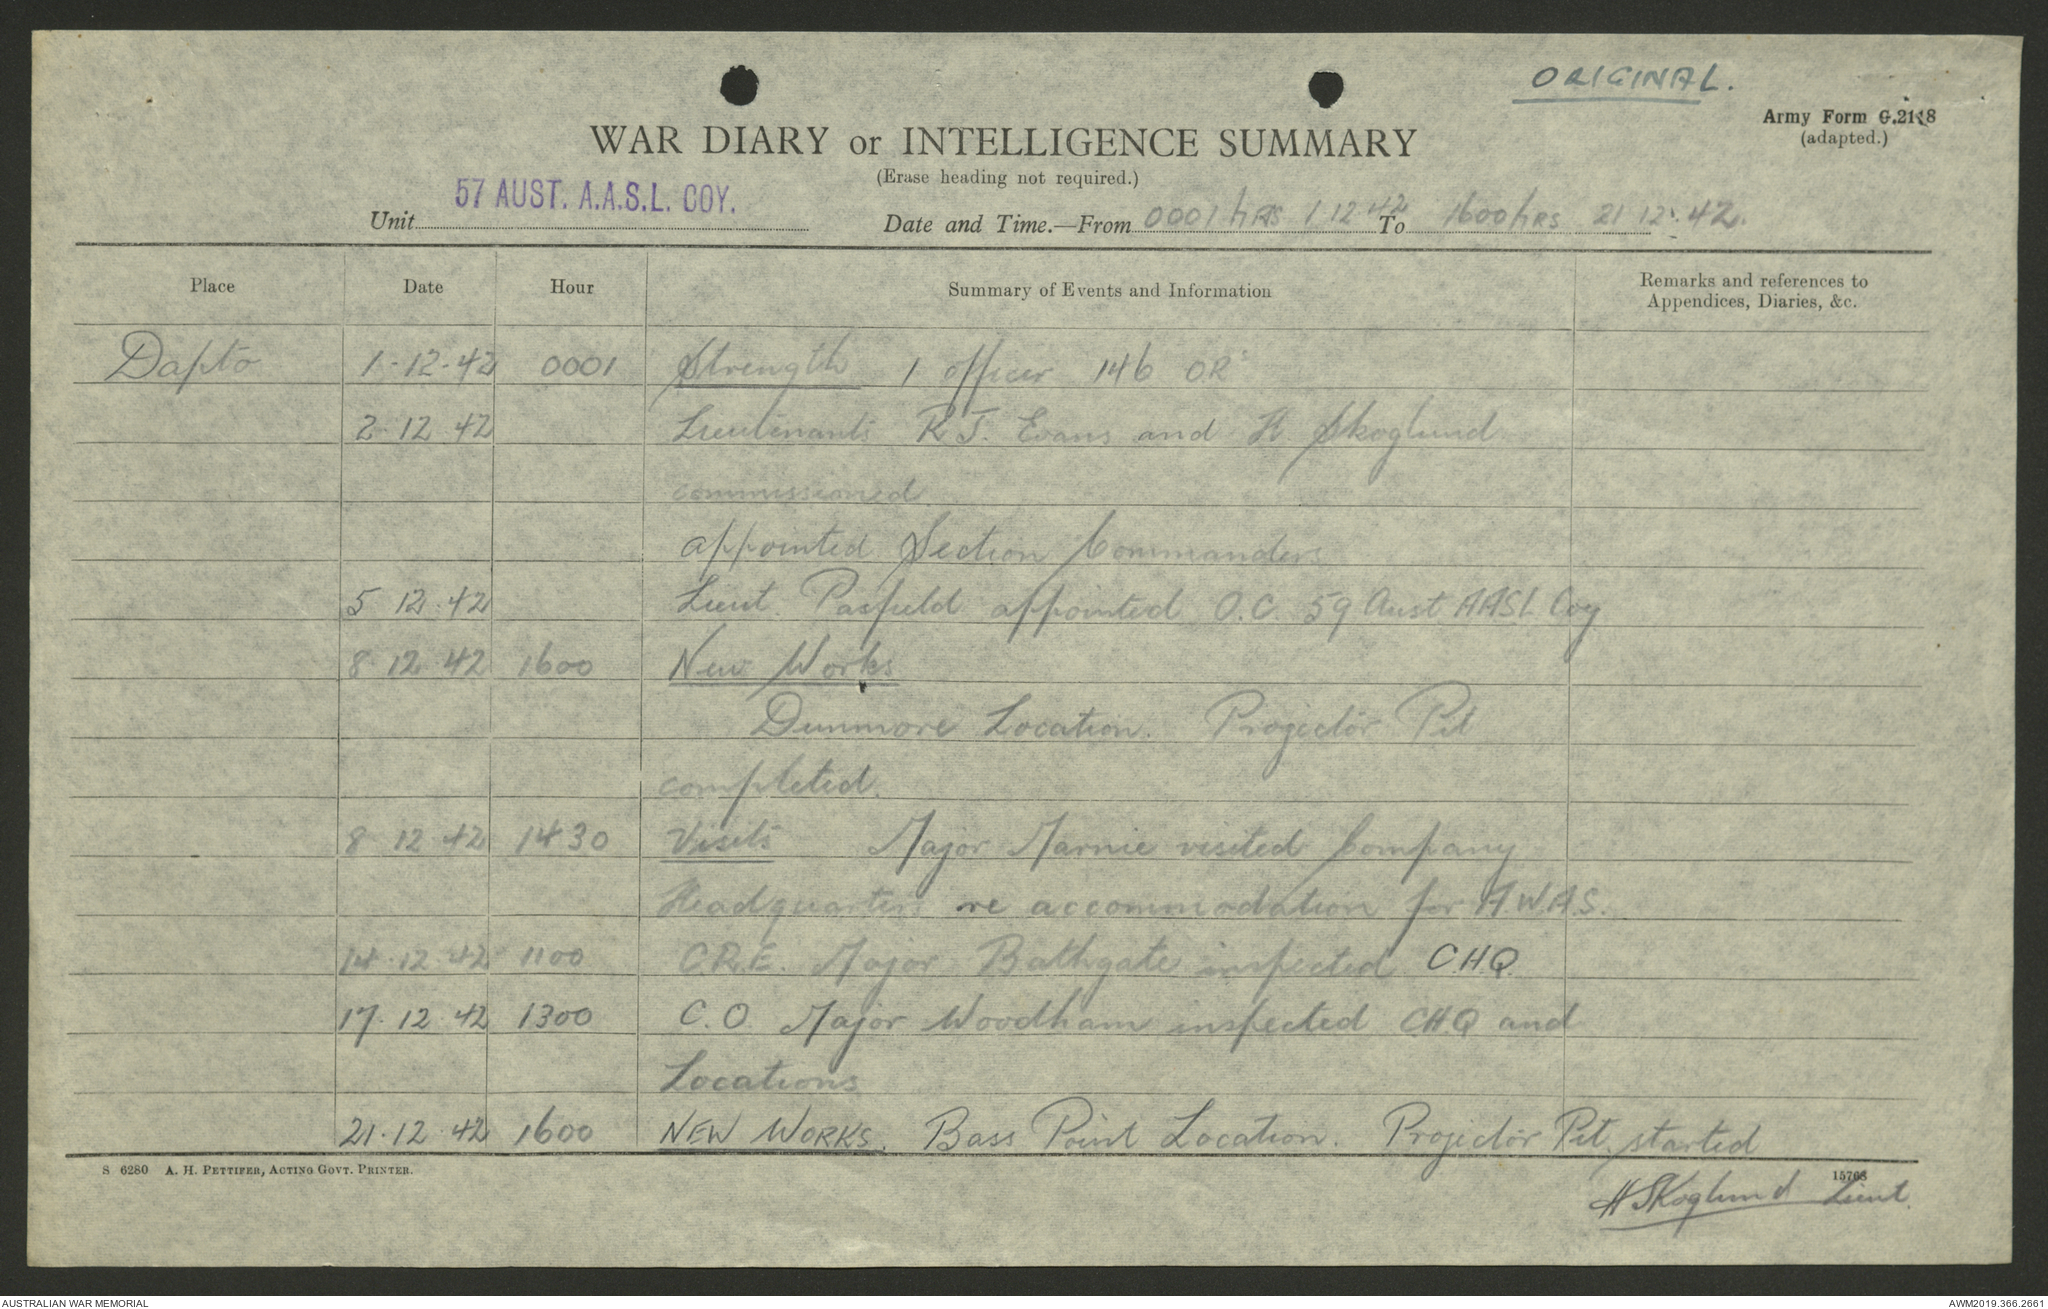 ORIGINAL.
Army Form C.2118
(adapted.)
WAR DIARY or INTELLIGENCE SUMMARY
(Erase heading not required.)
57 AUST. A.A.S.L. COY.
Unit Date and Time.—From 0001 hRS 1 12 42 To 1600 hRS 21 12. 42.
Place Date Hour Summary of Events and Information Remarks and references to
Appendices, Diaries, &c.
Dapto 1-12-42 0001 Strength 1 officer 146 OR's
2.12.42 Lieutenants R J. Evans and H Skoglund
commissioned
appointed Section Commanders
5 12.42 Lieut. Pasfield appointed O.C. 59 Aust AASL Coy
8 12 42 1600 New Works
Dunmore Location. Projector Pit
completed.
8 12 42 1430 Visits Major Marnie visited Company
Headquarters re accommodation for A.W.A.S.
14.12.42 1100 C.R.E. Major Bathgate inspected C.H.Q.
17.12.42 1300 C.O. Major Woodham inspected CHQ and
Locations
21.12.42 1600 NEW WORKS. Bass Point Location. Projector Pit started
S 6280 A. H. PETTIFER, ACTING GOVT. PRINTER. 15768
H Skoglund Lieut.
AUSTRALIAN WAR MEMORIAL AWM2019.366.2661